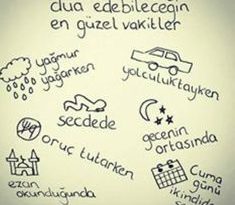 dua edebileceğin
en güzel vakitler
yağmur
yağarken
yolculuktayken
secdede
gecenin
ortasında
oruç tutarken
ezan
okunduğunda
Cuma
günü
ikindide